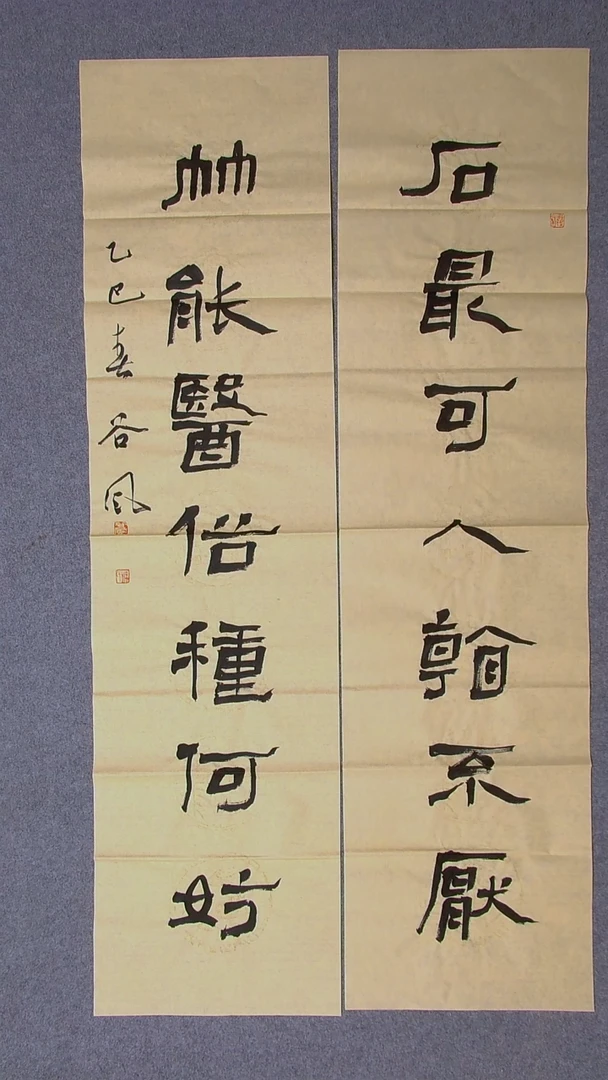 石最可人看不厭
竹能醫俗種何妨
乙巳春谷風